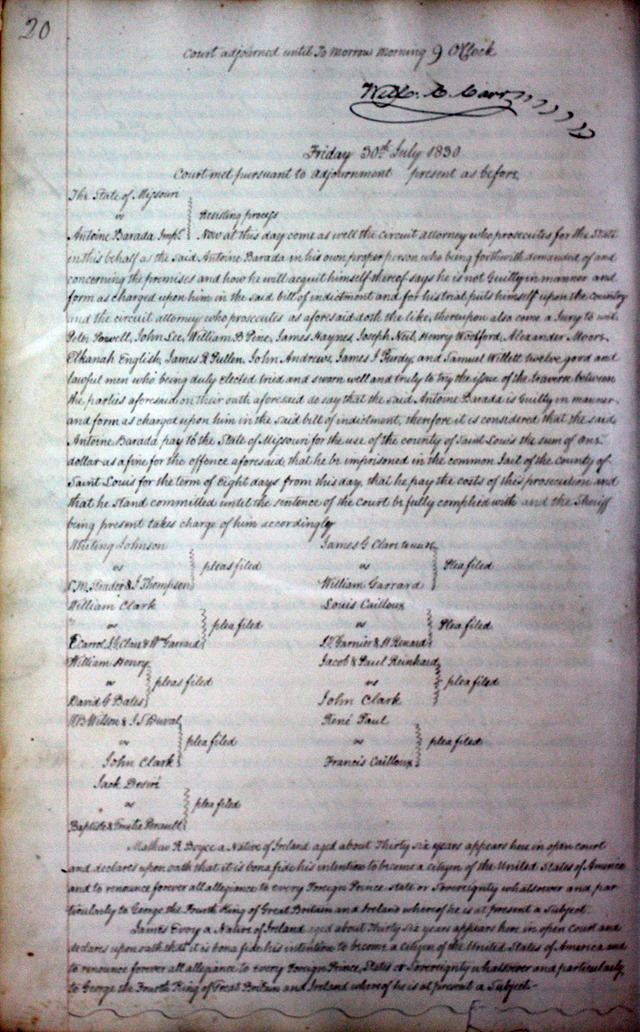 20
Court adjourned until To Morrow morning 9 O'Clock
Will. C. Carr
Friday 30th July 1830
Court met pursuant to adjournment present as before
The State of Missouri
vs
Resisting process
Antoine Barada Impl. Now at this day come as well the circuit attorney who prosecutes for the State
in this behalf as the said Antoine Barada in his own proper person who being forthwith demanded of and
concerning the premises and how he will acquit himself thereof says he is not Guilty in manner and
form as charged upon him in the said bill of indictment and for his trial puts himself upon the Country
and the circuit attorney who prosecutes as aforesaid doth the like, thereupon also come a Jury to wit
Peter Powell, John Lee, William B Pene, James Haynes, Joseph Neil, Henry Woodford, Alexander Moore
Elkanah English, James R Pullen, John Andrews, James J Purdy, and Samuel Willett twelve good and
lawful men who being duly elected tried and sworn well and truly to try the issue of the traverse between
the parties aforesaid on their oath aforesaid do say that the said Antoine Barada is Guilty in manner
and form as charged upon him in the said bill of indictment, therefore it is considered that the said
Antoine Barada pay to the State of Missouri for the use of the county of Saint Louis the sum of One
dollar as a fine for the offence aforesaid, that he be imprisoned in the common Jail of the County of
Saint Louis for the term of Eight days from this day, that he pay the costs of this prosecution and
that he Stand committed until the sentence of the Court be fully complied with and the Sheriff
being present takes charge of him accordingly
Whiting Johnson
vs
pleas filed
Strader & J Thompson
James G Clare
vs
Plea filed
William Garrard
William Clark
vs
plea filed
Carrol, J G Clare & W Garrard
Louis Cailloux
vs
Plea filed
Garnier & H Renard
William Henry
vs
pleas filed
David G Bates
Jacob & Paul Reinhard
vs
plea filed
John Clark
Wilson & J S Duval
vs
plea filed
John Clark
René Paul
vs
plea filed
Francis Cailloux
Jack Desiré
vs
plea filed
Baptiste & Emilie Perault
Mathew R Boyce a Native of Ireland aged about Thirty six years appears here in open court
and declares upon oath that it is bona fide his intention to become a citizen of the United States of America
and to renounce forever all allegiance to every Foreign Prince, state or Sovereignty whatsoever and par
ticularly to George the Fourth King of Great Britain and Ireland whereof he is at present a Subject.
James Evory a Native of Ireland aged about Thirty six years appears here in open Court and
declares upon oath that it is bona fide his intention to become a citizen of the United States of America and
to renounce forever all allegiance to every Foreign Prince, States or Sovereignty whatever and particularly
to George the Fourth King of Great Britain and Ireland whereof he is at present a Subject-